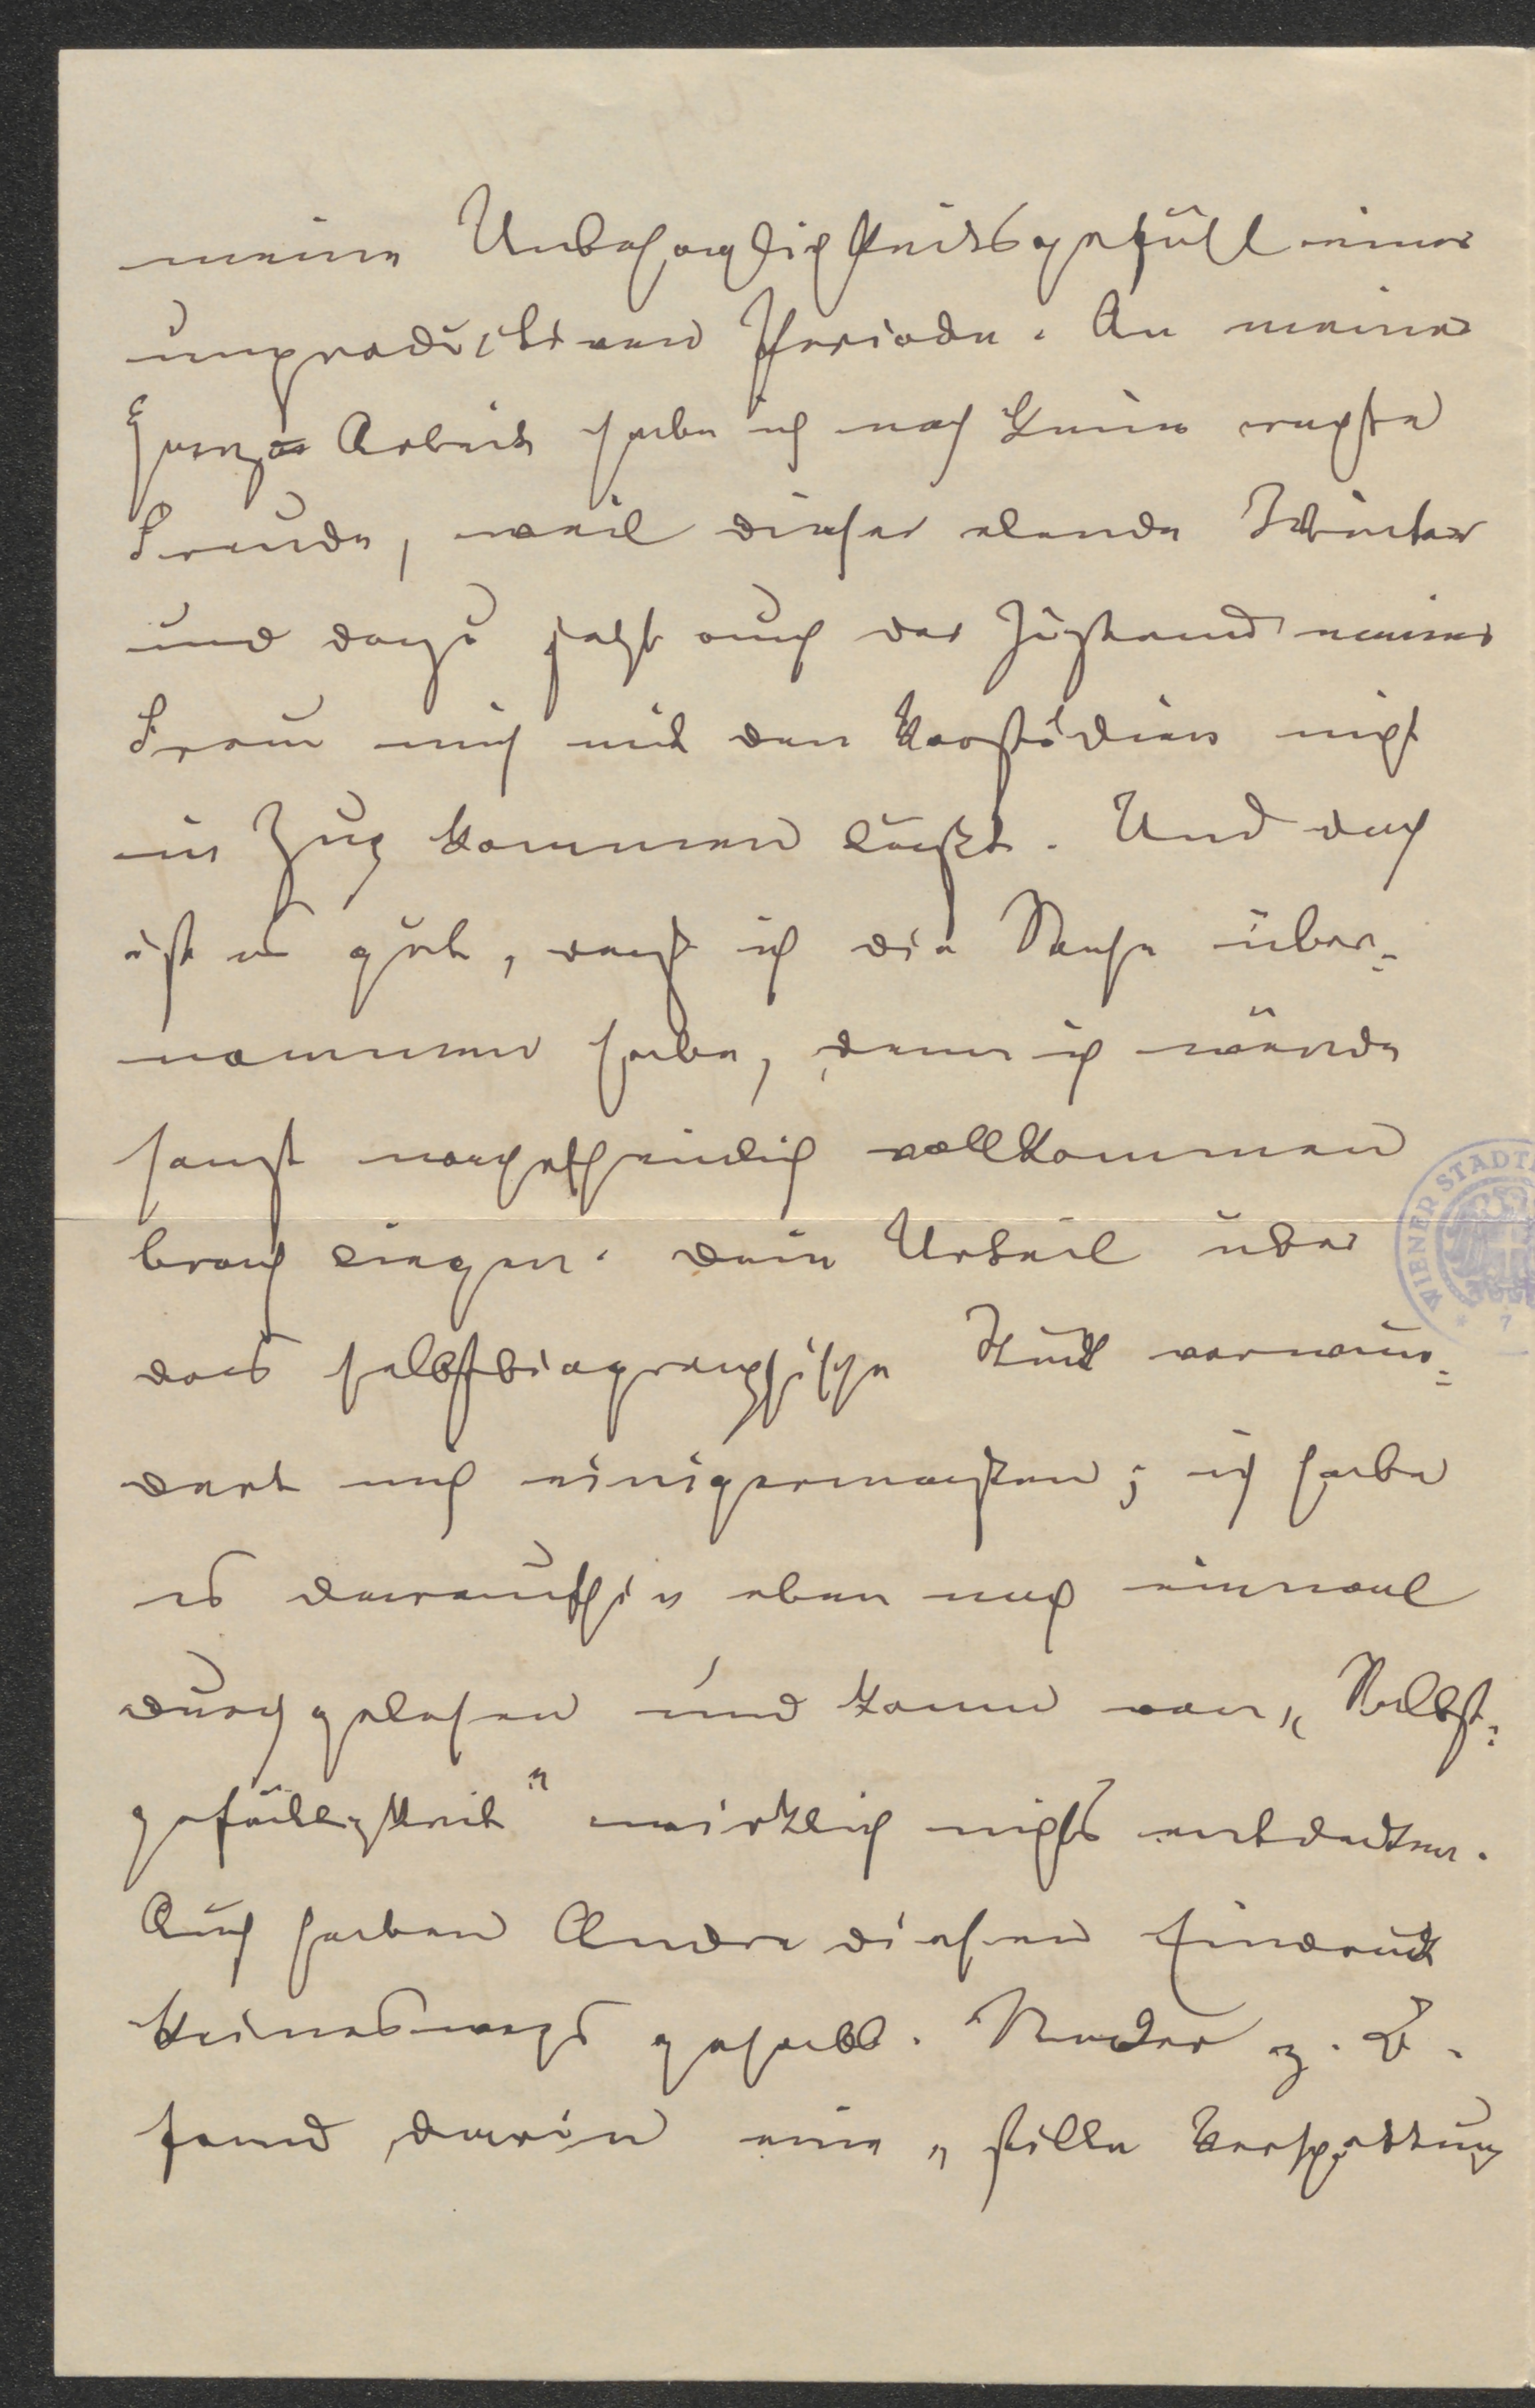 meine Unbehaglichkeitsgefühl einer
unproductiven Periode. An meiner
Arbeit habe ich noch keine rechte
Freude, weil dieser elende Winter
und dazu jetzt auch der Zustand meiner
Frau mich mit den Vorstudien nicht
in Zug kommen läßt. Und doch
ist es gut, daß ich die Sache über=
nommen habe, denn ich würde
sonst wahrscheinlich vollkommen
brach liegen. Dein Urteil über
das selbstbiographische Stück verwun=
dert mich einigermaßen; ich habe
es daraufhin eben noch einmal
durchgelesen und kann von „Selbst=
gefälligkeit“ wirklich nichts entdecken.
Auch haben Andre diesen Eindruck
keineswegs gehabt. z. B.
fand darin eine „stille Verspottung
WIENER STADT
7